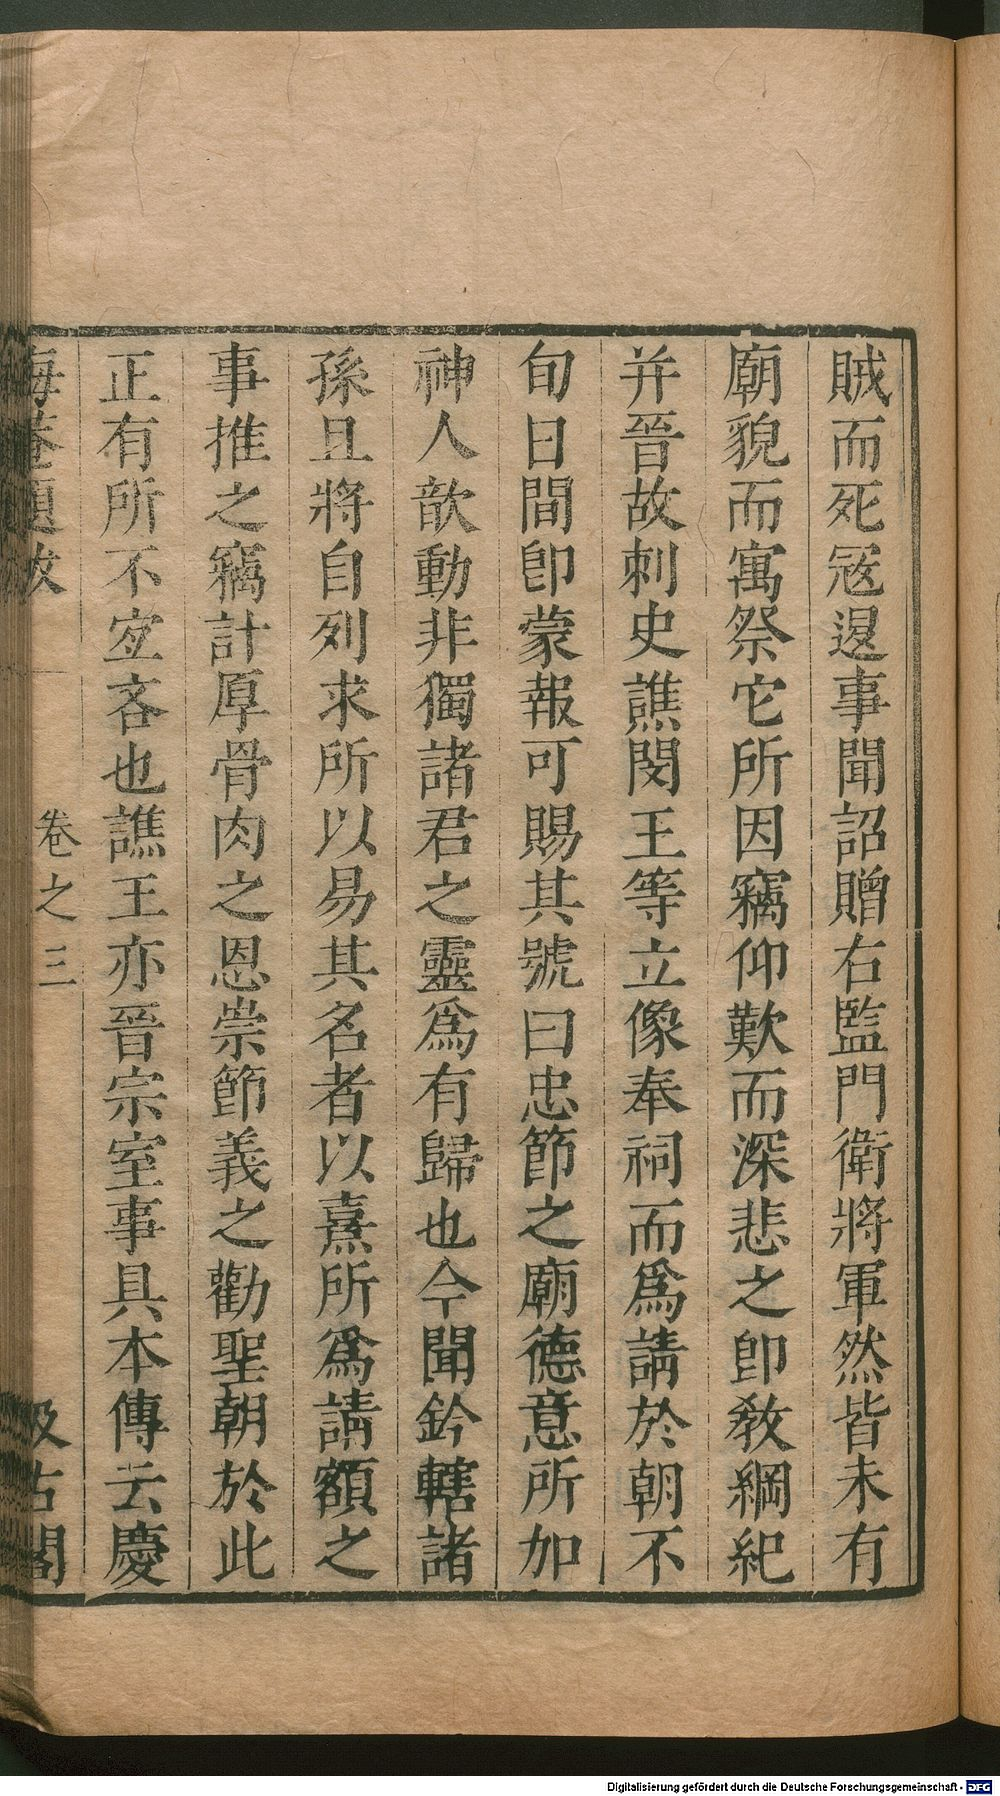 賊而死冦退事聞詔贈右監門衛將軍然皆未有
廟貌而寓祭它所因竊仰歎而深悲之卽敎綱紀
并晉故刺史譙閔王等立像奉祠而爲請於朝不
旬日間卽蒙報可賜其號曰忠節之廟德意所加
神人歆動非獨諸君之靈爲有歸也今聞鈐轄諸
孫且將自列求所以易其名者以熹所爲請額之
事推之竊計厚骨肉之恩崇節義之勸聖朝於此
正有所不宐吝也譙王亦晉宗室事具本傳云慶
晦菴題跋
卷之三
汲古閣
Digitalisierung gefördert durch die Deutsche Forschungsgemeinschaft - DFG